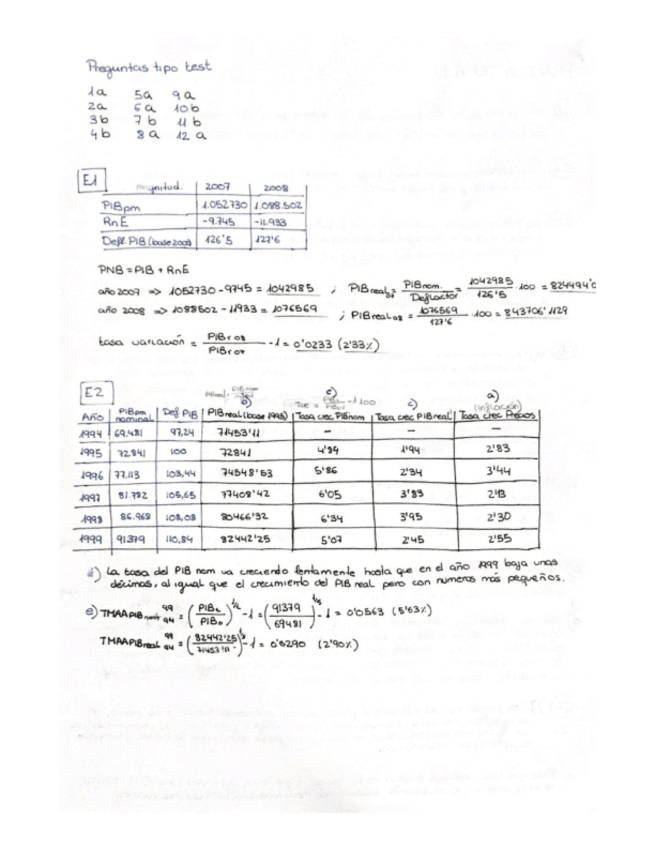 Preguntas tipo test
1a 5a 9a
2a 6a 10b
3b 7b 11b
4b 8a 12a
E1
magnitud. 2007 2008
PIBpm 1.052730 1.088.502
RnE -9.745 -11.933
Defl. PIB (base 2000) 126'5 127'6
PNB = PIB + RnE
año 2007 => 1052730 - 9745 = 1042985 ; PIB real07 = PIB nom. / Deflactor = 1042985 / 126'5 · 100 = 824494'0
año 2008 => 1088502 - 11933 = 1076569 ; PIB real08 = 1076569 / 127'6 · 100 = 843706'1129
tasa variación = PIBr08 / PIBr07 - 1 = 0'0233 (2'33%)
E2
b) e) c) a)
(Inflación)
Año PIBpm nominal Def PIB PIB real (base 1995) Tasa crec PIBnom Tasa crec PIBreal Tasa crec Precios
1994 69.481 97,24 71453'11 - - -
1995 72.841 100 72841 4'84 1'94 2'83
1996 77.113 103,44 74548'53 5'86 2'34 3'44
1997 81.782 105,65 77408'42 6'05 3'83 2'13
1998 86.968 108,08 80466'32 6'34 3'95 2'30
1999 91379 110,84 82442'25 5'07 2'45 2'55
d) La tasa del PIB nom va creciendo lentamente hasta que en el año 1999 baja unas
décimas, al igual que el crecimiento del PIB real pero con numeros más pequeños.
e) TMAAPIBnom 99 94 = (PIBt / PIBo)^1/t - 1 = (91379 / 69481)^1/5 - 1 = 0'0563 (5'63%)
TMAAPIBreal 99 94 = (82442'25 / 71453'11)^1/5 - 1 = 0'0290 (2'90%)